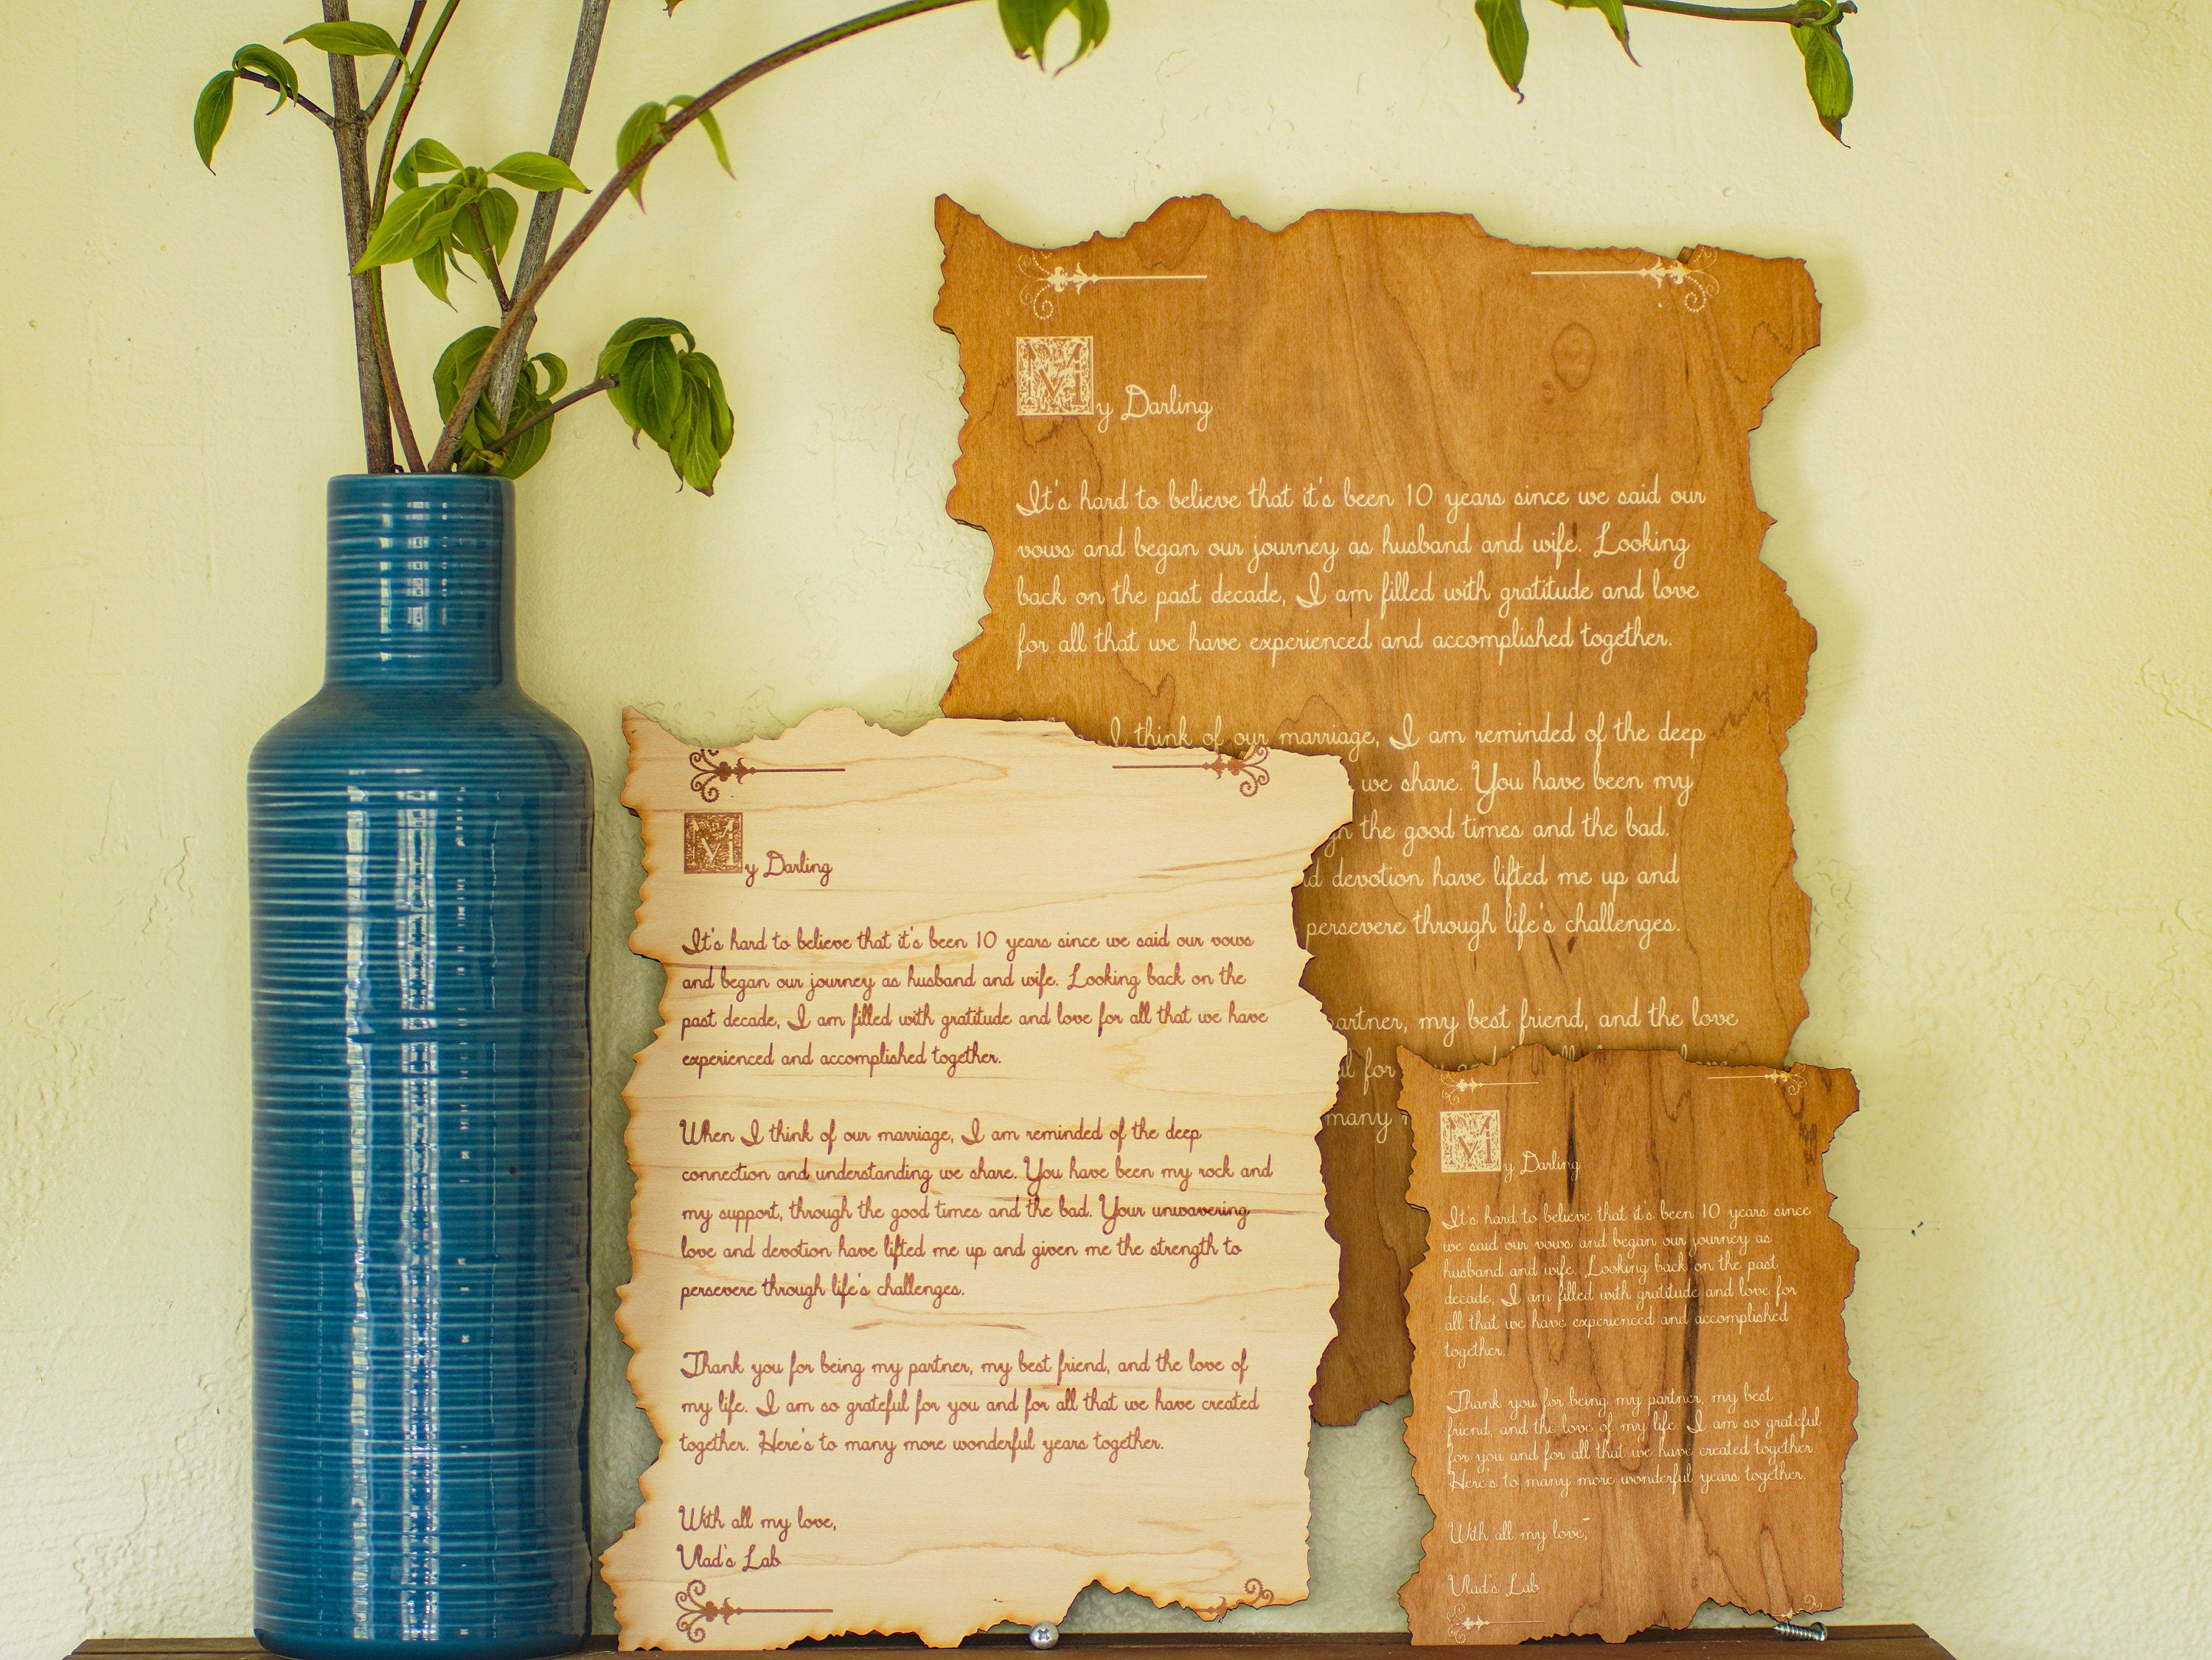 My Darling
It's hard to believe that it's been 10 years since we said our
vows and began our journey as husband and wife. Looking
back on the past decade, I am filled with gratitude and love
for all that we have experienced and accomplished together.
I think of our marriage, I am reminded of the deep
we share. You have been my
the good times and the bad.
devotion have lifted me up and
persevere through life's challenges.
my best friend, and the love
for
many
My Darling
It's hard to believe that it's been 10 years since we said our vows
and began our journey as husband and wife. Looking back on the
past decade, I am filled with gratitude and love for all that we have
experienced and accomplished together.
When I think of our marriage, I am reminded of the deep
connection and understanding we share. You have been my rock and
my support, through the good times and the bad. Your unwavering
love and devotion have lifted me up and given me the strength to
persevere through life's challenges.
Thank you for being my partner, my best friend, and the love of
my life. I am so grateful for you and for all that we have created
together. Here's to many more wonderful years together.
With all my love,
Vlad's Lab
My Darling
It's hard to believe that it's been 10 years since
we said our vows and began our journey as
husband and wife. Looking back on the past
decade, I am filled with gratitude and love for
all that we have experienced and accomplished
together.
Thank you for being my partner, my best
friend, and the love of my life. I am so grateful
for you and for all that we have created together.
Here's to many more wonderful years together.
With all my love,
Vlad's Lab